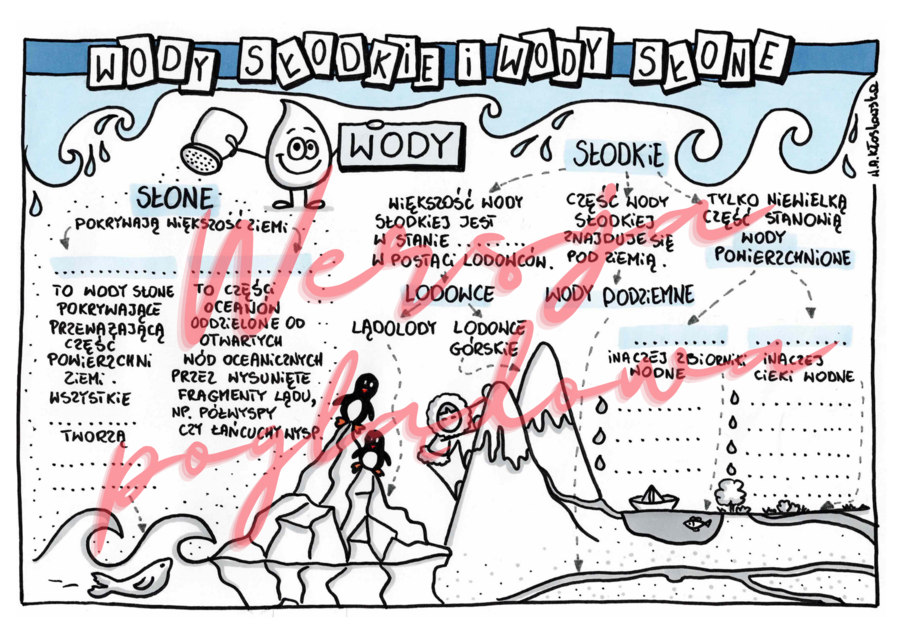 WODY SŁODKIE i WODY SŁONE
H.A. Kłosłowska
WODY
SŁONE
POKRYWAJĄ WIĘKSZOŚĆ ZIEMI
....................
TO WODY SŁONE
POKRYWAJĄCE
PRZEWAŻAJĄCĄ
CZĘŚĆ
POWIERZCHNI
ZIEMI.
WSZYSTKIE
....................
TWORZĄ
....................
....................
....................
TO CZĘŚCI
OCEANÓW
ODDZIELONE OD
OTWARTYCH
WÓD OCEANICZNYCH
PRZEZ WYSUNIĘTE
FRAGMENTY LĄDU,
NP. PÓŁWYSPY
CZY ŁAŃCUCHY WYSP.
SŁODKIE
WIĘKSZOŚĆ WODY
SŁODKIEJ JEST
W STANIE ..........
W POSTACI LODOWCÓW.
LODOWCE
LĄDOLODY
LODOWCE
GÓRSKIE
CZĘŚĆ WODY
SŁODKIEJ
ZNAJDUJE SIĘ
POD ZIEMIĄ.
WODY PODZIEMNE
TYLKO NIEWIELKĄ
CZĘŚĆ STANOWIĄ
WODY
POWIERZCHNIOWE
....................
iNACZEJ ZBIORNIKI
WODNE
....................
....................
....................
....................
....................
iNACZEJ
CIEKI WODNE
....................
....................
....................
....................
....................
Wersja
poglądowa